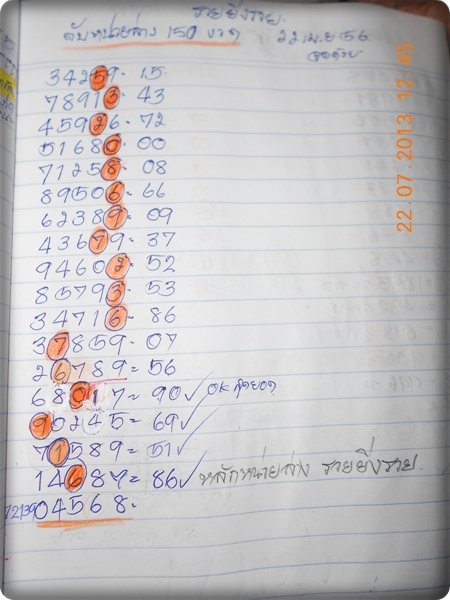 รวยยิ่งรวย.
ดับหน่วยล่าง 150 งวด 22 เม.ย 56
34259. 15
78913. 43
45926. 72
51680. 00
71258. 08
89506= 66
62389= 09
43679= 37
94602= 52
85793= 53
34716= 86
37859= 07
26789= 56
68017= 90 ✓ OK
95245= 69 ✓
71589= 51 ✓
14687= 86 ✓ หลักหน่วยล่าง รวยยิ่งรวย.
04568=
22.07.2013 12:45